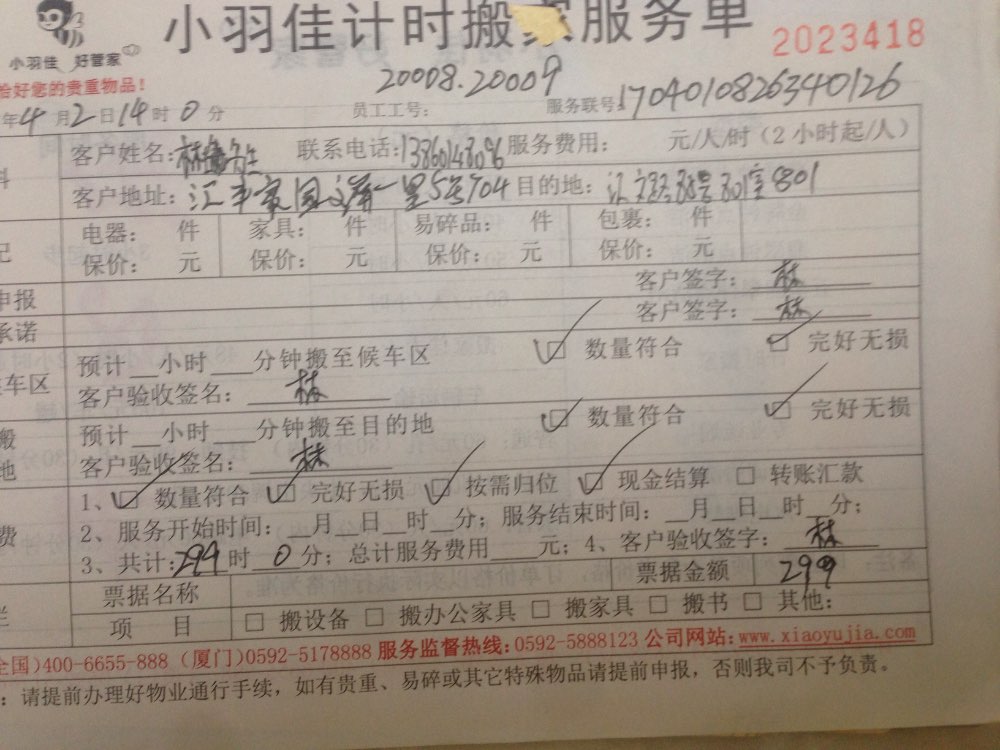 小羽佳计时搬家服务单
小羽佳 好管家
2023418
恰好您的贵重物品！
20008.20009
年4月2日14时0分 员工工号： 服务联号：1704010826340126
客户姓名： 联系电话： 服务费用： 元/人/时（2小时起/人）
客户地址：汇丰家园文萍一里5号704 目的地： 801
电器： 件 家具： 件 易碎品： 件 包裹： 件
保价： 元 保价： 元 保价： 元 保价： 元
申报 客户签字：林
承诺 客户签字：林
预计__小时___分钟搬至候车区 ☑ 数量符合 ☑ 完好无损
车区 客户验收签名：林
预计__小时___分钟搬至目的地 ☑ 数量符合 ☑ 完好无损
搬
地 客户验收签名：林
1、☑ 数量符合 ☑ 完好无损 ☑ 按需归位 ☑ 现金结算 □ 转账汇款
费 2、服务开始时间：__月__日__时__分；服务结束时间：__月__日__时__分；
3、共计：299时0分；总计服务费用___元；4、客户验收签字：林
票据名称 票据金额 299
栏 项 目 □ 搬设备 □ 搬办公家具 □ 搬家具 □ 搬书 □ 其他：
全国)400-6655-888 (厦门)0592-5178888 服务监督热线：0592-5888123 公司网站：www.xiaoyujia.com
：请提前办理好物业通行手续，如有贵重、易碎或其它特殊物品请提前申报，否则我司不予负责。